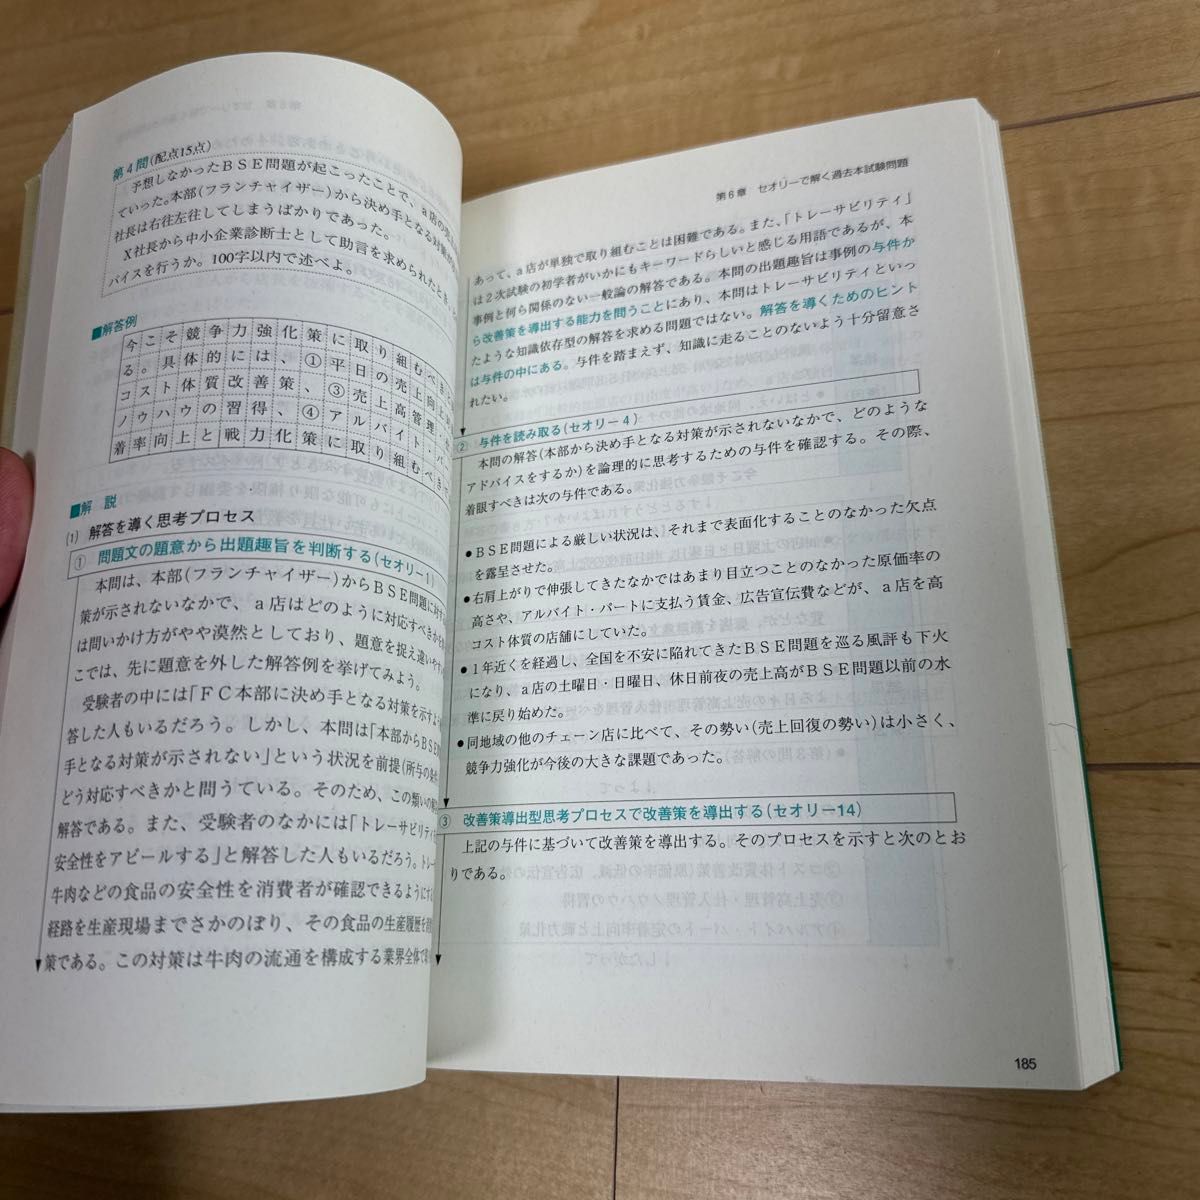 第4問(配点15点)
予想しなかったBSE問題が起こったことで、a店の
ていった。本部(フランチャイザー)から決め手となる対策が
社長は右往左往してしまうばかりであった。
X社長から中小企業診断士として助言を求められたとき、
バイスを行うか。100字以内で述べよ。
■解答例
今こそ競争力強化策に取り組むべき
る。具体的には、①平日の売上向上
コスト体質改善策、③売上高管理・
ノウハウの習得、④アルバイト・パ
着率向上と戦力化策に取り組むべき
■解 説
(1) 解答を導く思考プロセス
① 問題文の題意から出題趣旨を判断する(セオリー1)
本問は、本部(フランチャイザー)からBSE問題に対す
策が示されないなかで、a店はどのように対応すべきか
は問いかけ方がやや漠然としており、題意を捉え違いや
こでは、先に題意を外した解答例を挙げてみよう。
受験者の中には「FC本部に決め手となる対策を示すよ
答した人もいるだろう。しかし、本問は「本部からBSE
手となる対策が示されない」という状況を前提(所与の条件
どう対応すべきかと問うている。そのため、この類いの解
解答である。また、受験者のなかには「トレーサビリティ
安全性をアピールする」と解答した人もいるだろう。トレー
牛肉などの食品の安全性を消費者が確認できるように
経路を生産現場までさかのぼり、その食品の生産履歴を
策である。この対策は牛肉の流通を構成する業界全体で
第6章 セオリーで解く過去本試験問題
あって、a店が単独で取り組むことは困難である。また、「トレーサビリティ」
は2次試験の初学者がいかにもキーワードらしいと感じる用語であるが、本
事例と何ら関係のない一般論の解答である。本問の出題趣旨は事例の与件か
ら改善策を導出する能力を問うことにあり、本問はトレーサビリティといっ
たような知識依存型の解答を求める問題ではない。解答を導くためのヒント
は与件の中にある。与件を踏まえず、知識に走ることのないよう十分留意さ
れたい。
② 与件を読み取る(セオリー4)
本問の解答(本部から決め手となる対策が示されないなかで、どのような
アドバイスをするか)を論理的に思考するための与件を確認する。その際、
着眼すべきは次の与件である。
●BSE問題による厳しい状況は、それまで表面化することのなかった欠点
を露呈させた。
●右肩上がりで伸張してきたなかではあまり目立つことのなかった原価率の
高さや、アルバイト・パートに支払う賃金、広告宣伝費などが、a店を高
コスト体質の店舗にしていた。
●1年近くを経過し、全国を不安に陥れてきたBSE問題を巡る風評も下火
になり、a店の土曜日・日曜日、休日前夜の売上高がBSE問題以前の水
準に戻り始めた。
●同地域の他のチェーン店に比べて、その勢い(売上回復の勢い)は小さく、
競争力強化が今後の大きな課題であった。
③ 改善策導出型思考プロセスで改善策を導出する(セオリー14)
上記の与件に基づいて改善策を導出する。そのプロセスを示すと次のとお
りである。
185